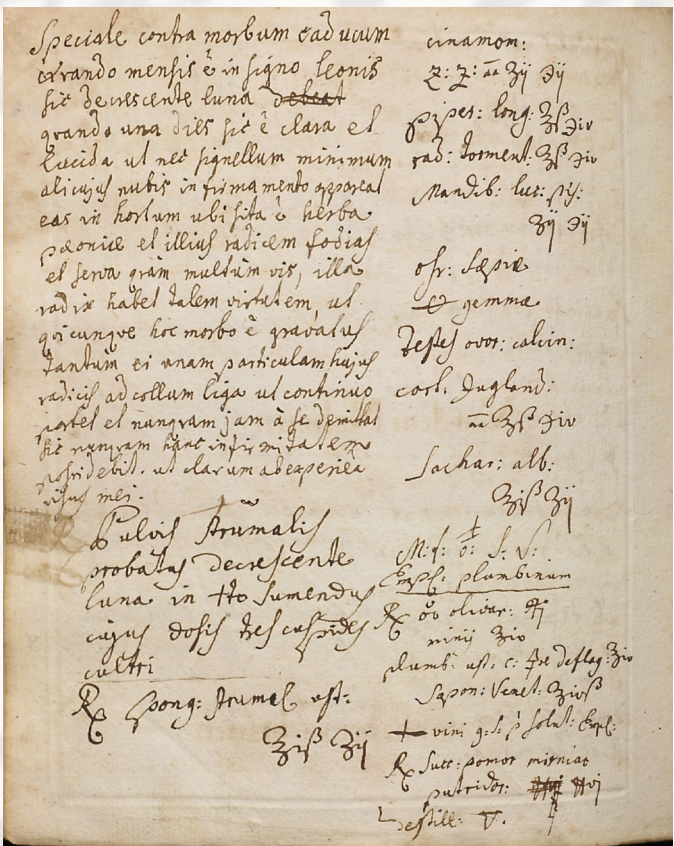 Speciale contra morbum caducum
qvando mensis ē in signo leonis
sic decrescente luna debeat
qvando una dies sic ē clara et
lucida ut nec signellum minimum
alicujus nubis in firmamento appareat
eas in hortum ubi sita ē herba
pæoniæ et illius radicem fodias
et serva qvam multum vis, illa
radix habet talem virtutem, ut
qvicunqve hoc morbo ē gravatus
tantum ei unam particulam hujus
radicis ad collum liga ut continuo
portet et nunqvam jam à se demittat
sic nunqvam hanc infirmitatem
ut clarum ab experiēa
mei.
℞ Pulvis strumalis
probatus decrescente
luna in sumendus
cujus dosis tres cuspides
cultri
℞ Spong: strumal ust:
℥iß ʒij
cinamom:
Z: Z: āā ʒij ℈ij
piper: long: ʒß ℈iv
rad: torment: ʒß ℈iv
Mandib: luc: pis:
ʒij ℈ij
oss: sæpiæ
gemmæ
Testes ovor: calcin:
cort: Jugland:
āā ʒß ℈iv
Sachar: alb:
℥iß ʒij
M: f:
Empl: plumbinum
℞ olivar:
minii ℥iv
plumb: ust: c: deflag: ℥iv
Sapon: Venet: ℥ivß
vini q: s: p solut: Empl:
℞ Succ: pomor
putridor:
destill: